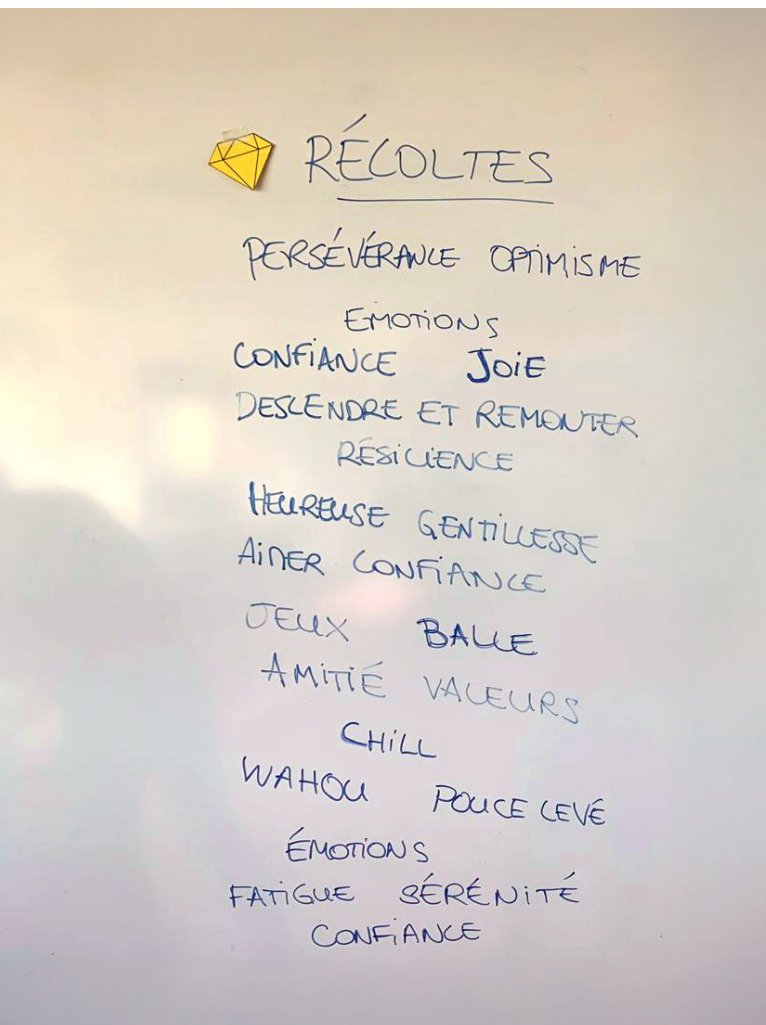 RÉCOLTES
PERSÉVÉRANCE OPTIMISME
EMOTIONS
CONFIANCE JOIE
DESCENDRE ET REMONTER
RÉSILIENCE
HEUREUSE GENTILLESSE
AIMER CONFIANCE
JEUX BALLE
AMITIÉ VALEURS
CHILL
WAHOU POUCE LEVÉ
ÉMOTIONS
FATIGUE SÉRÉNITÉ
CONFIANCE